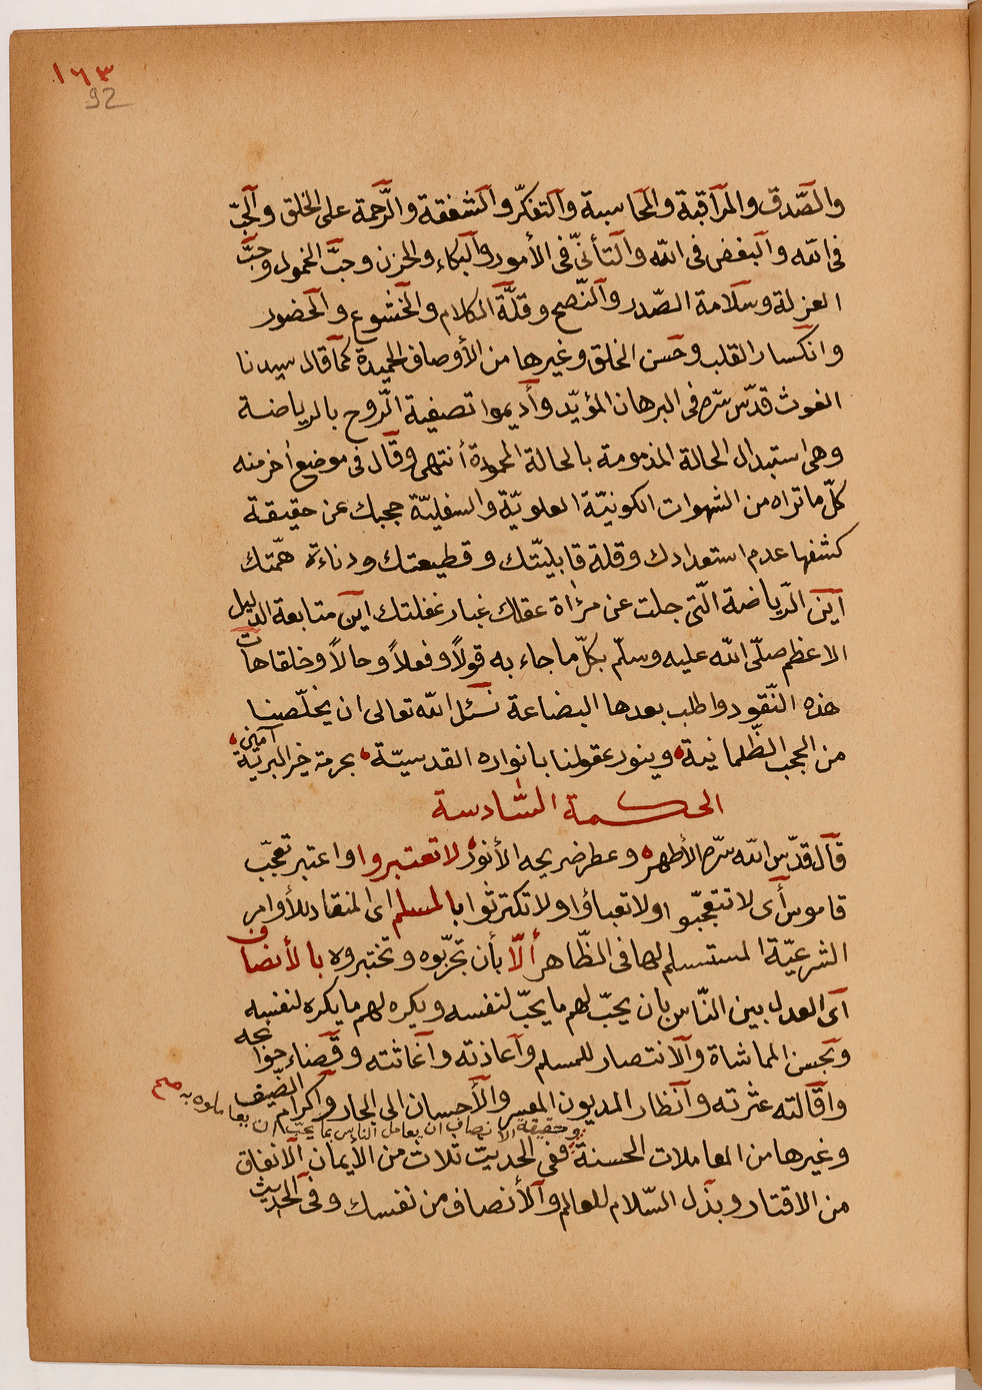 ١٦٣
92
والصّدق والمراقبة والمحاسبة والتفكّر والشفقة والرّحمة على الخلق والحبّ
فى الله والبغض فى الله والتأنّى فى الأمور والبكاء والحزن وحبّ الخمول وحبّ
العزلة وسلامة الصّدر والنّصح وقلّة الكلام والخشوع والحضور
وانكسار القلب وحسن الخلق وغيرها من الأوصاف الحميدة كما قال سيدنا
الغوث قدّس سرّه فى البرهان المؤيّد وأديموا تصفية الرّوح بالرياضة
وهى استبدال الحالة المذمومة بالحالة المحمودة أنتهى وقال فى موضع أخر منه
كلّ ما تراه من الشهوات الكونيّة العلويّة والسفليّة حجبك عن حقيقة
كشفها عدم استعدادك وقلة قابليّتك وقطيعتك ودناءة همّتك
اين الرّياضة الّتى جلت عن مرٰاة عقلك غبار غفلتك اين متابعة الدليل
الاعظم صلّى الله عليه وسلّم بكلّ ما جاء به قولاً وفعلاً وحالاً وخلقا هات
هذه النّقود واطلب بعدها البضاعة نسئل الله تعالى ان يخلّصنا
من الحجب الظّلمانية وينور عقولنا بانواره القدسيّة بحرمة خير البريّة آمين
الحكمة السّادسة
قال قدّس الله سرّه الأطهر وعطر ضريحه الأنور لا تعتبروا واعتبر تعجّب
قاموس أى لا تتعجّبوا ولا تعباؤا ولا تكترثوا بالمسلم اى المنقاد للأوامر
الشرعيّة المستسلم لها فى الظّاهر ألّا بأن تجرّبوه وتختبروه بالأنصاف
اى العدل بين النّاس بان يحبّ لهم ما يحبّ لنفسه ويكره لهم ما يكره لنفسه
وبحسن المماشاة والانتصار للمسلم واعاذته واغاثته وقضاء حوائجه
واقالته عثرته وانظار المديون المعسر والأحسان الى الجار واكرام الضّيف
وحقيقة الانصاف ان يعامل الناس بما يحبّ ان يعاملوه به صح
وغيرها من المعاملات الحسنة ففى الحديث ثلاث من الأيمان الانفاق
من الاقتار وبذل السّلام للعالم والأنصاف من نفسك وفى الحديث